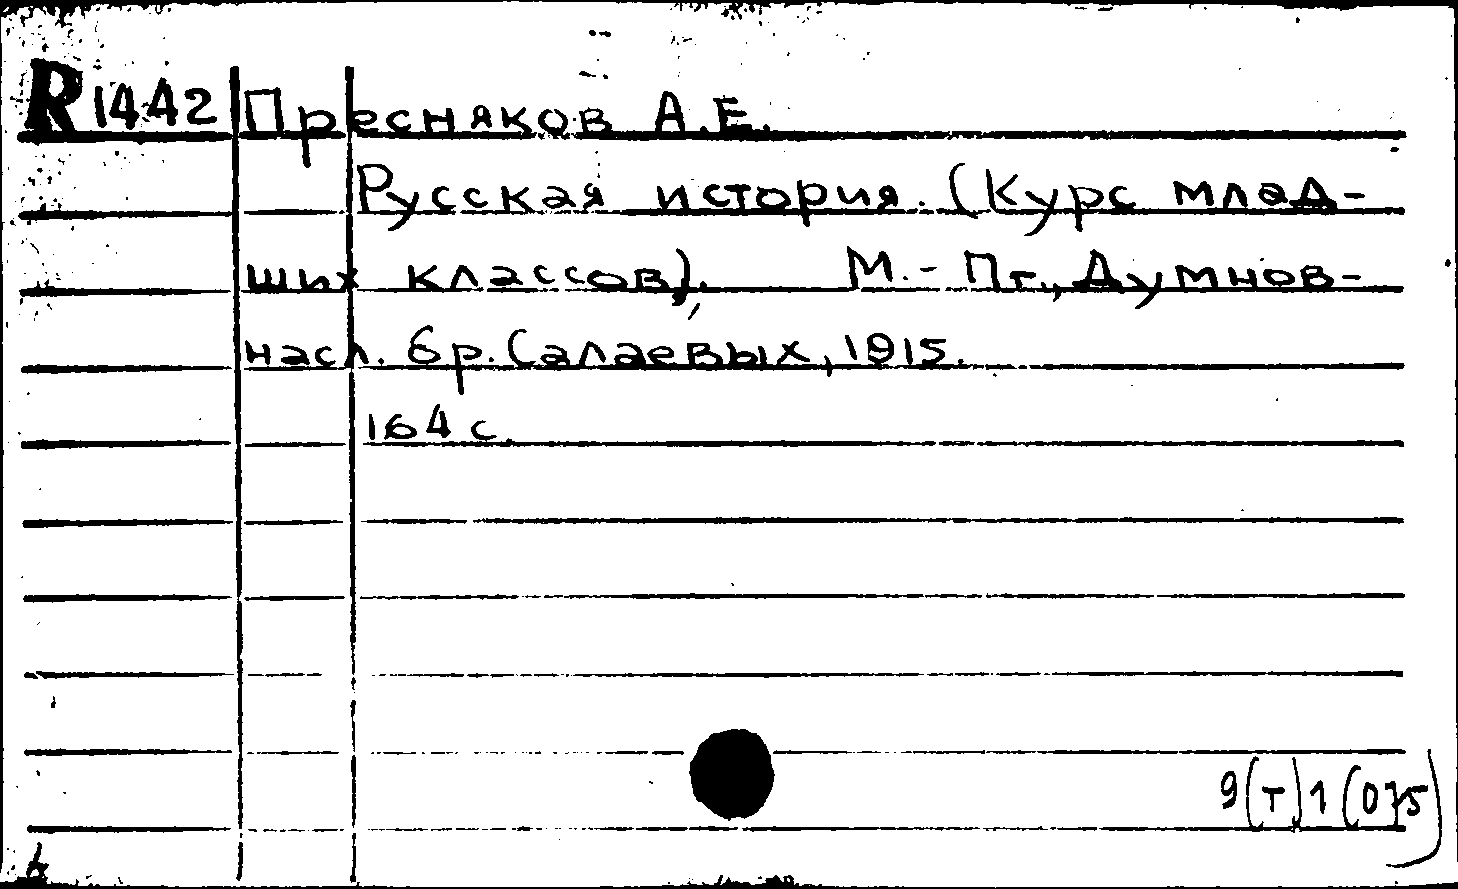 R 1442 Пресняков А.Е.
Русская история. (Курс млад-
ших классов). М.- Пг., Думнов-
насл. бр. Салаевых, 1915.
164 с.
9(т)1(075)